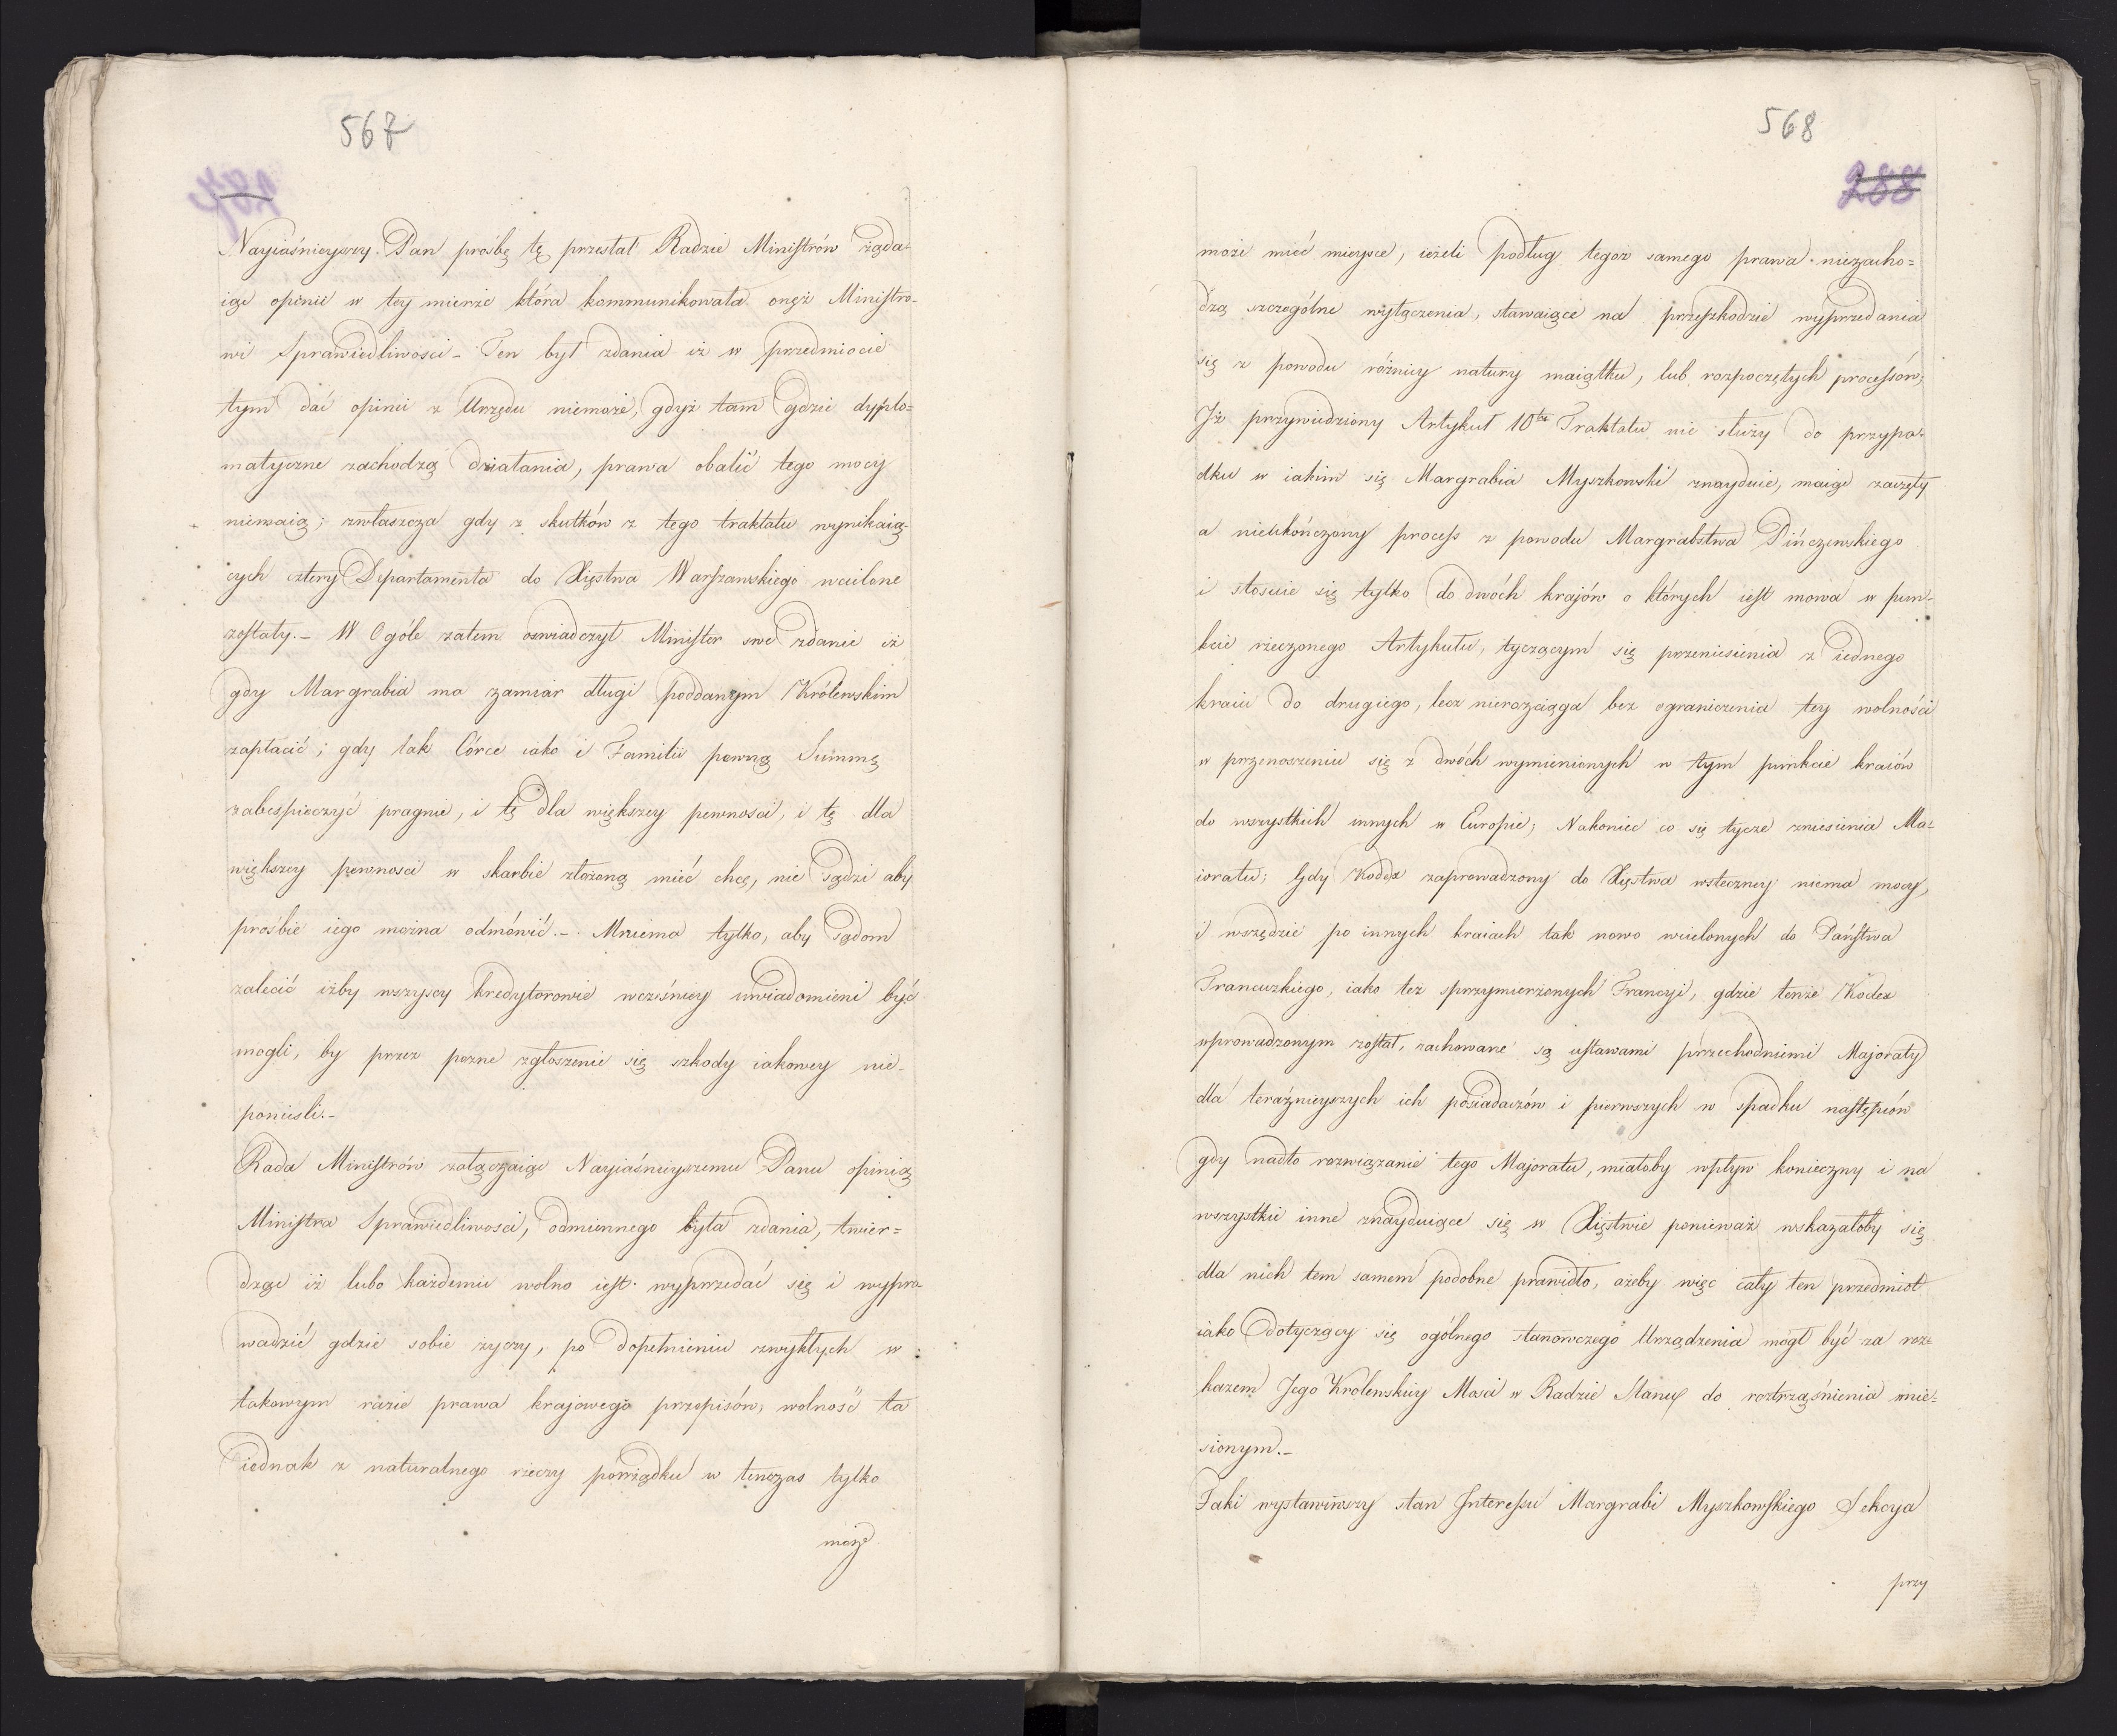 567
287
Nayiaśnieyszy Pan prośbę tę przesłał Radzie Ministrów żąda-
iąc opinii w tey mierze która kommunikowała onęż Ministro-
wi Sprawiedliwosci - Ten był zdania iż w przedmiocie
tym dać opinii z Urzędu niemoże, gdyż tam gdzie dyplo=
matyczne zachodzą działania, prawa obalić tego mocy
niemaią; zwłaszcza gdy z skutków z tego traktatu wynikaią-
cych cztery Departamenta do Xięstwa Warszawskiego wcielone
zostały.- W Ogóle zatem oswiadczył Minister swe zdanie iż
gdy Margrabia ma zamiar długi poddanym Królewskim
zapłacić; gdy tak Córce iako i Familii pewną Summę
zabespieczyć pragnie, i tę dla większey pewnosci, i tę dla
większey pewnosci w skarbie złożoną mieć chce, nie sądzi aby
prośbie iego można odmówić.- Mniema tylko, aby sądom
zalecić iżby wszyscy kredytorowie wcześniey uwiadomieni być
mogli, by przez pozne zgłoszenie się szkody iakowey nie-
poniesli.-
Rada Ministrów załączaiąc Nayiaśnieyszemu Panu opinią
Ministra Sprawiedliwosci, odmiennego była zdania, twier=
dząc iż lubo każdemu wolno iest wyprzedać się i wypro-
wadzić gdzie sobie życzy, po dopełnieniu zwykłych w
takowym razie prawa krajowego przepisów, wolność ta
iednak z naturalnego rzeczy porządku w tenczas tylko
może
568
288
może mieć mieysce, ieżeli podług tegoż samego prawa niezacho=
dzą szczególne wyłączenia, stawaiące na przeszkodzie wyprzedania
się z powodu różnicy natury maiątku, lub rozpoczętych processów;
Iż przywiedziony Artykuł 10ty Traktatu nie służy do przypa-
dku w iakim się Margrabia Myszkowski znayduie, maiąc zaczęty
a nieukończony process z powodu Margrabstwa Pińczewskiego
i stosuie się tylko do dwóch krajów o których iest mowa w pun-
kcie rzeczonego Artykułu, tyczącym się przeniesienia z iednego
kraiu do drugiego, lecz nierozciąga bez ograniczenia tey wolności
w przenoszeniu się z dwóch wymienionych w tym punkcie kraiów
do wszystkich innych w Europie; Nakoniec co się tycze zniesienia Ma-
ioratu; Gdy Kodex zaprowadzony do Xięstwa wsteczney niema mocy,
i wszędzie po innych kraiach tak nowo wcielonych do Państwa
Francuzkiego, iako też sprzymierzonych Francyi, gdzie tenże Kodex
wprowadzonym został, zachowane są ustawami przechodniemi Majoraty
dla teraźnieyszych ich posiadaczów i pierwszych w spadku następców
gdy nadto rozwiązanie tego Majoratu, miałoby wpływ konieczny i na
wszystkie inne znayduiące się w Xięstwie ponieważ wskazałoby się
dla nich tem samem podobne prawidło, ażeby więc cały ten przedmiot
iako dotyczący się ogólnego stanowczego Urządzenia mógł być za roz-
kazem Jego Krolewskiey Mosci w Radzie Stanu do roztrząśnienia wnie-
sionym.-
Taki wystawiwszy stan Interessu Margrabi Myszkowskiego Sekcya
przy